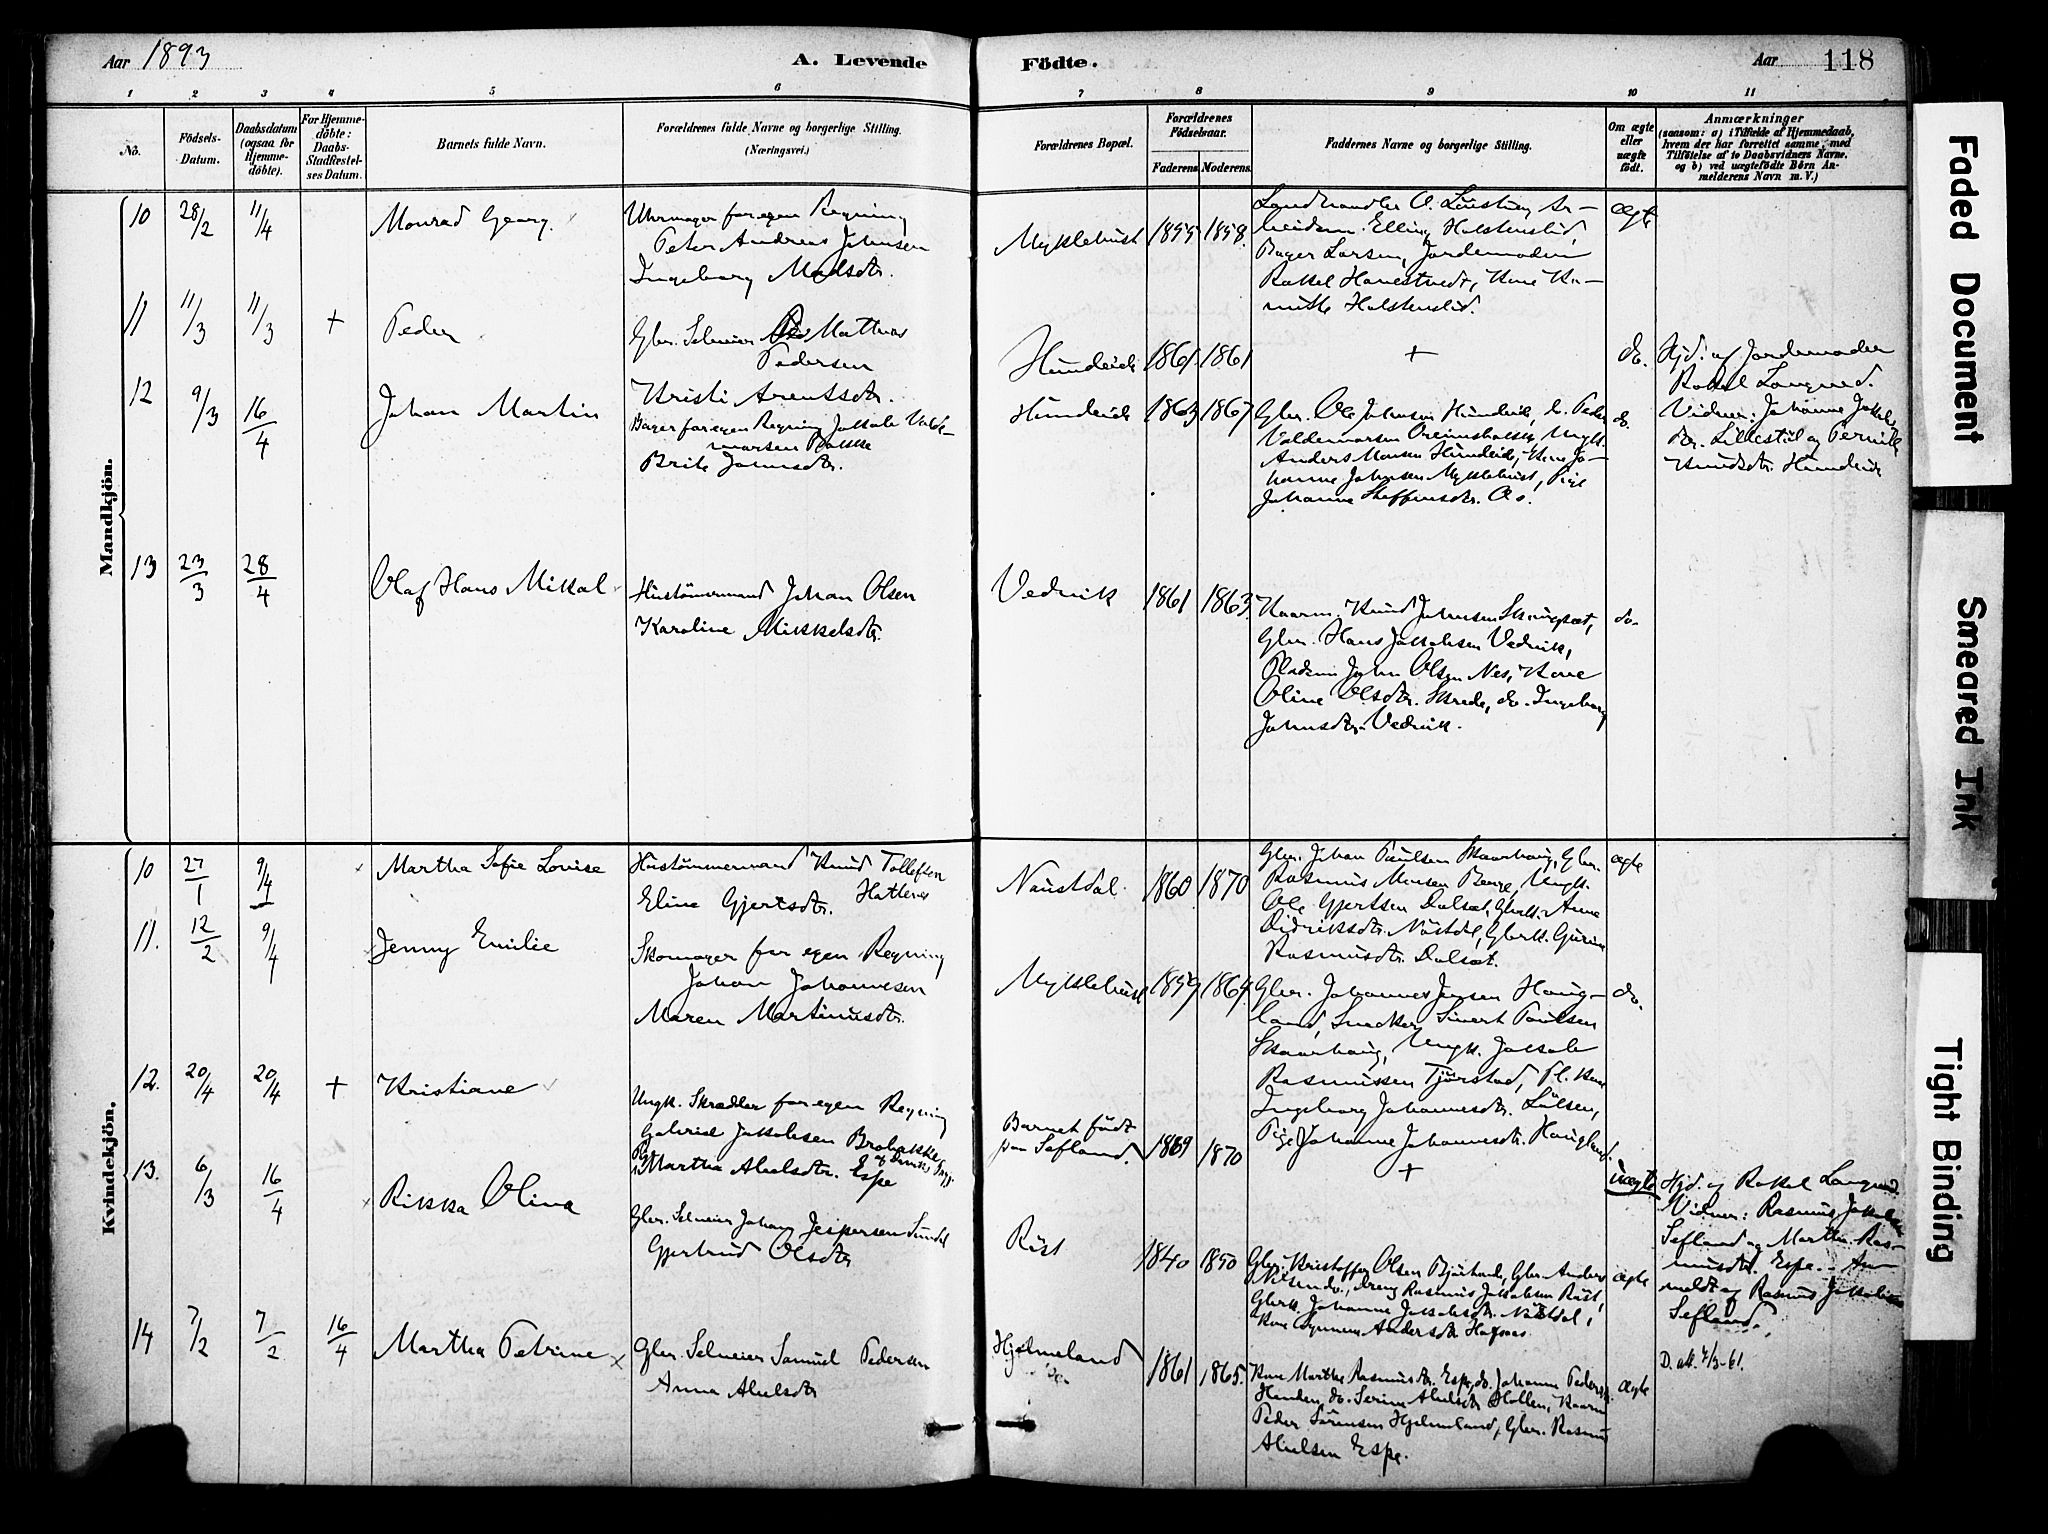 Aar 1893
A. Levende
Födte.
Aar
118
1 2 3 4 5 6 7 8 9 10 11
No.
Födsels-Datum.
Daabsdatum (ogsaa for Hjemme-döbte).
For Hjemme-döbte: Daabs-Stadfæstel-ses Datum.
Barnets fulde Navn.
Forældrenes fulde Navne og borgerlige Stilling.
(Næringsvei.)
Forældrenes Bopæl.
Forældrenes Födselsaar.
Faderens Moderens
Faddernes Navne og borgerlige Stilling.
Om ægte eller uægte födt.
Anmærkninger
(saasom: a) i Tilfælde af Hjemmedaab,
hvem der har forrettet samme, med
Tilföielse af to Daabsvidners Navne.
og b) ved uægtefödte Börn An-
melderens Navn m. V.)
Mandkjön.
10 28/2 11/4 Monrad Georg.
Uhrmager for egen Regning
Peter Andreas Johnsen
Ingeborg Madsdtr.
Myklebust 1855 1858.
Landhandler O.
Elling Holstenslid,
Bager Larsen, Jordemoder
Rakel Hanestvedt, Kone
Holstenslid.
ægte
11 11/3 11/3 + Peder
Gbr. Selveier Mathias
Pedersen
Kristi Arentsdtr.
Hundeide 1861 1861
+
do.
Hjd. af Jordemoder
Rakel Langned.
Vidner: Johanne
Lillestöl og Pernille
Knudsdtr. Hundeide
12 9/3 16/4 Johan Martin
Bager for egen Regning Jakob Valde-
marsen Bakke
Brite Johnsdtr.
Hundeide 1863 1867
Gbr. Ole Johnsen Hundeide, Peder
Valdemarsen Ungk.
Anders Monsen Hundeide, Kone Jo-
hanne Johnsen Myklebust, Pige
Johanne Steffensdtr. Os.
do.
13 23/3 28/4 Olaf Hans Mikal
Hustömmermand Johan Olsen
Karoline Mikkelsdtr.
Vedvik 1861 1863.
Kaarm. Knud Johnsen
Gbr. Hans Jakobsen Vedvik,
Pladsm. John Olsen Nes, Kone
Oline Olsdtr. Skrede, do. Ingeborg
Johnsdtr. Vedvik.
do.
Kvindekjön.
10 27/1 9/4 Martha Sofie Lovise
Hustömmermand Knud Tollefsen
Hatlenes
Eline Gjertsdtr.
Naustdal. 1860 1870
Gbr. Johan Paulsen Skaarhaug, Gbr.
Rasmus Monsen Berge, Ungk.
Ole Gjertsen Dalset, Gbrk. Anne
Didriksdtr. Nöstdal, Gbrk. Gurine
Rasmusdtr. Dalset.
ægte
11. 12/2 9/4 Jenny Emilie
Skomager for egen Regning
Johan Johannesen
Maren Martinusdtr.
Myklebust 1859 1864.
Gbr. Johannes Jensen Haug-
land, Snedker Sivert Paulsen
Skaarhaug, Ungk. Jakob
Rasmussen Tjörstad, Pl. Kone
Ingeborg Johannesdtr.
Pige Johanne Johannesdtr. Haugland.
do.
12. 20/4 20/4 + Kristiane
Ungk. Skrædder for egen Regning
Gabriel Jakobsen Brobakke
Martha Abelsdtr. Espe
Barnet födt
paa Sefland. 1869 1870
+
uægte
Hjd. af Rakel Langned.
Vidner: Rasmus Jakobsen
Sefland og Martha Ras-
musdtr. Espe. - An-
meldt af Rasmus Jakobsen
Sefland.
13. 6/3 16/4 Rikka Olina
Gbr. Selveier Johan Jespersen Sundal
Gjertrud Olsdtr.
Röst 1840 1850
Gbr. Kristoffer Olsen Gbr. Anders
Nilsen do., Dreng Rasmus Jakobsen Röst,
Gbrk. Johanne Jakobsdtr. Nöstdal,
Kone Andersdtr.
ægte
14 7/2 7/2 16/4 Martha Petrine
Gbr. Selveier Samuel Pedersen
Anna Abelsdtr
Hjelmeland 1861 1865.
Kone Marthe Rasmusdtr. Espe, do. Johanne Pedersdtr.
Henden, do. Serine Abelsdtr Hollen, Kaarm
Peder Sörensen Hjelmeland, Gbr. Rasmus
Abelsen Espe.
ægte
D. att. 4/3-61.
Faded Document
Smeared Ink
Tight Binding